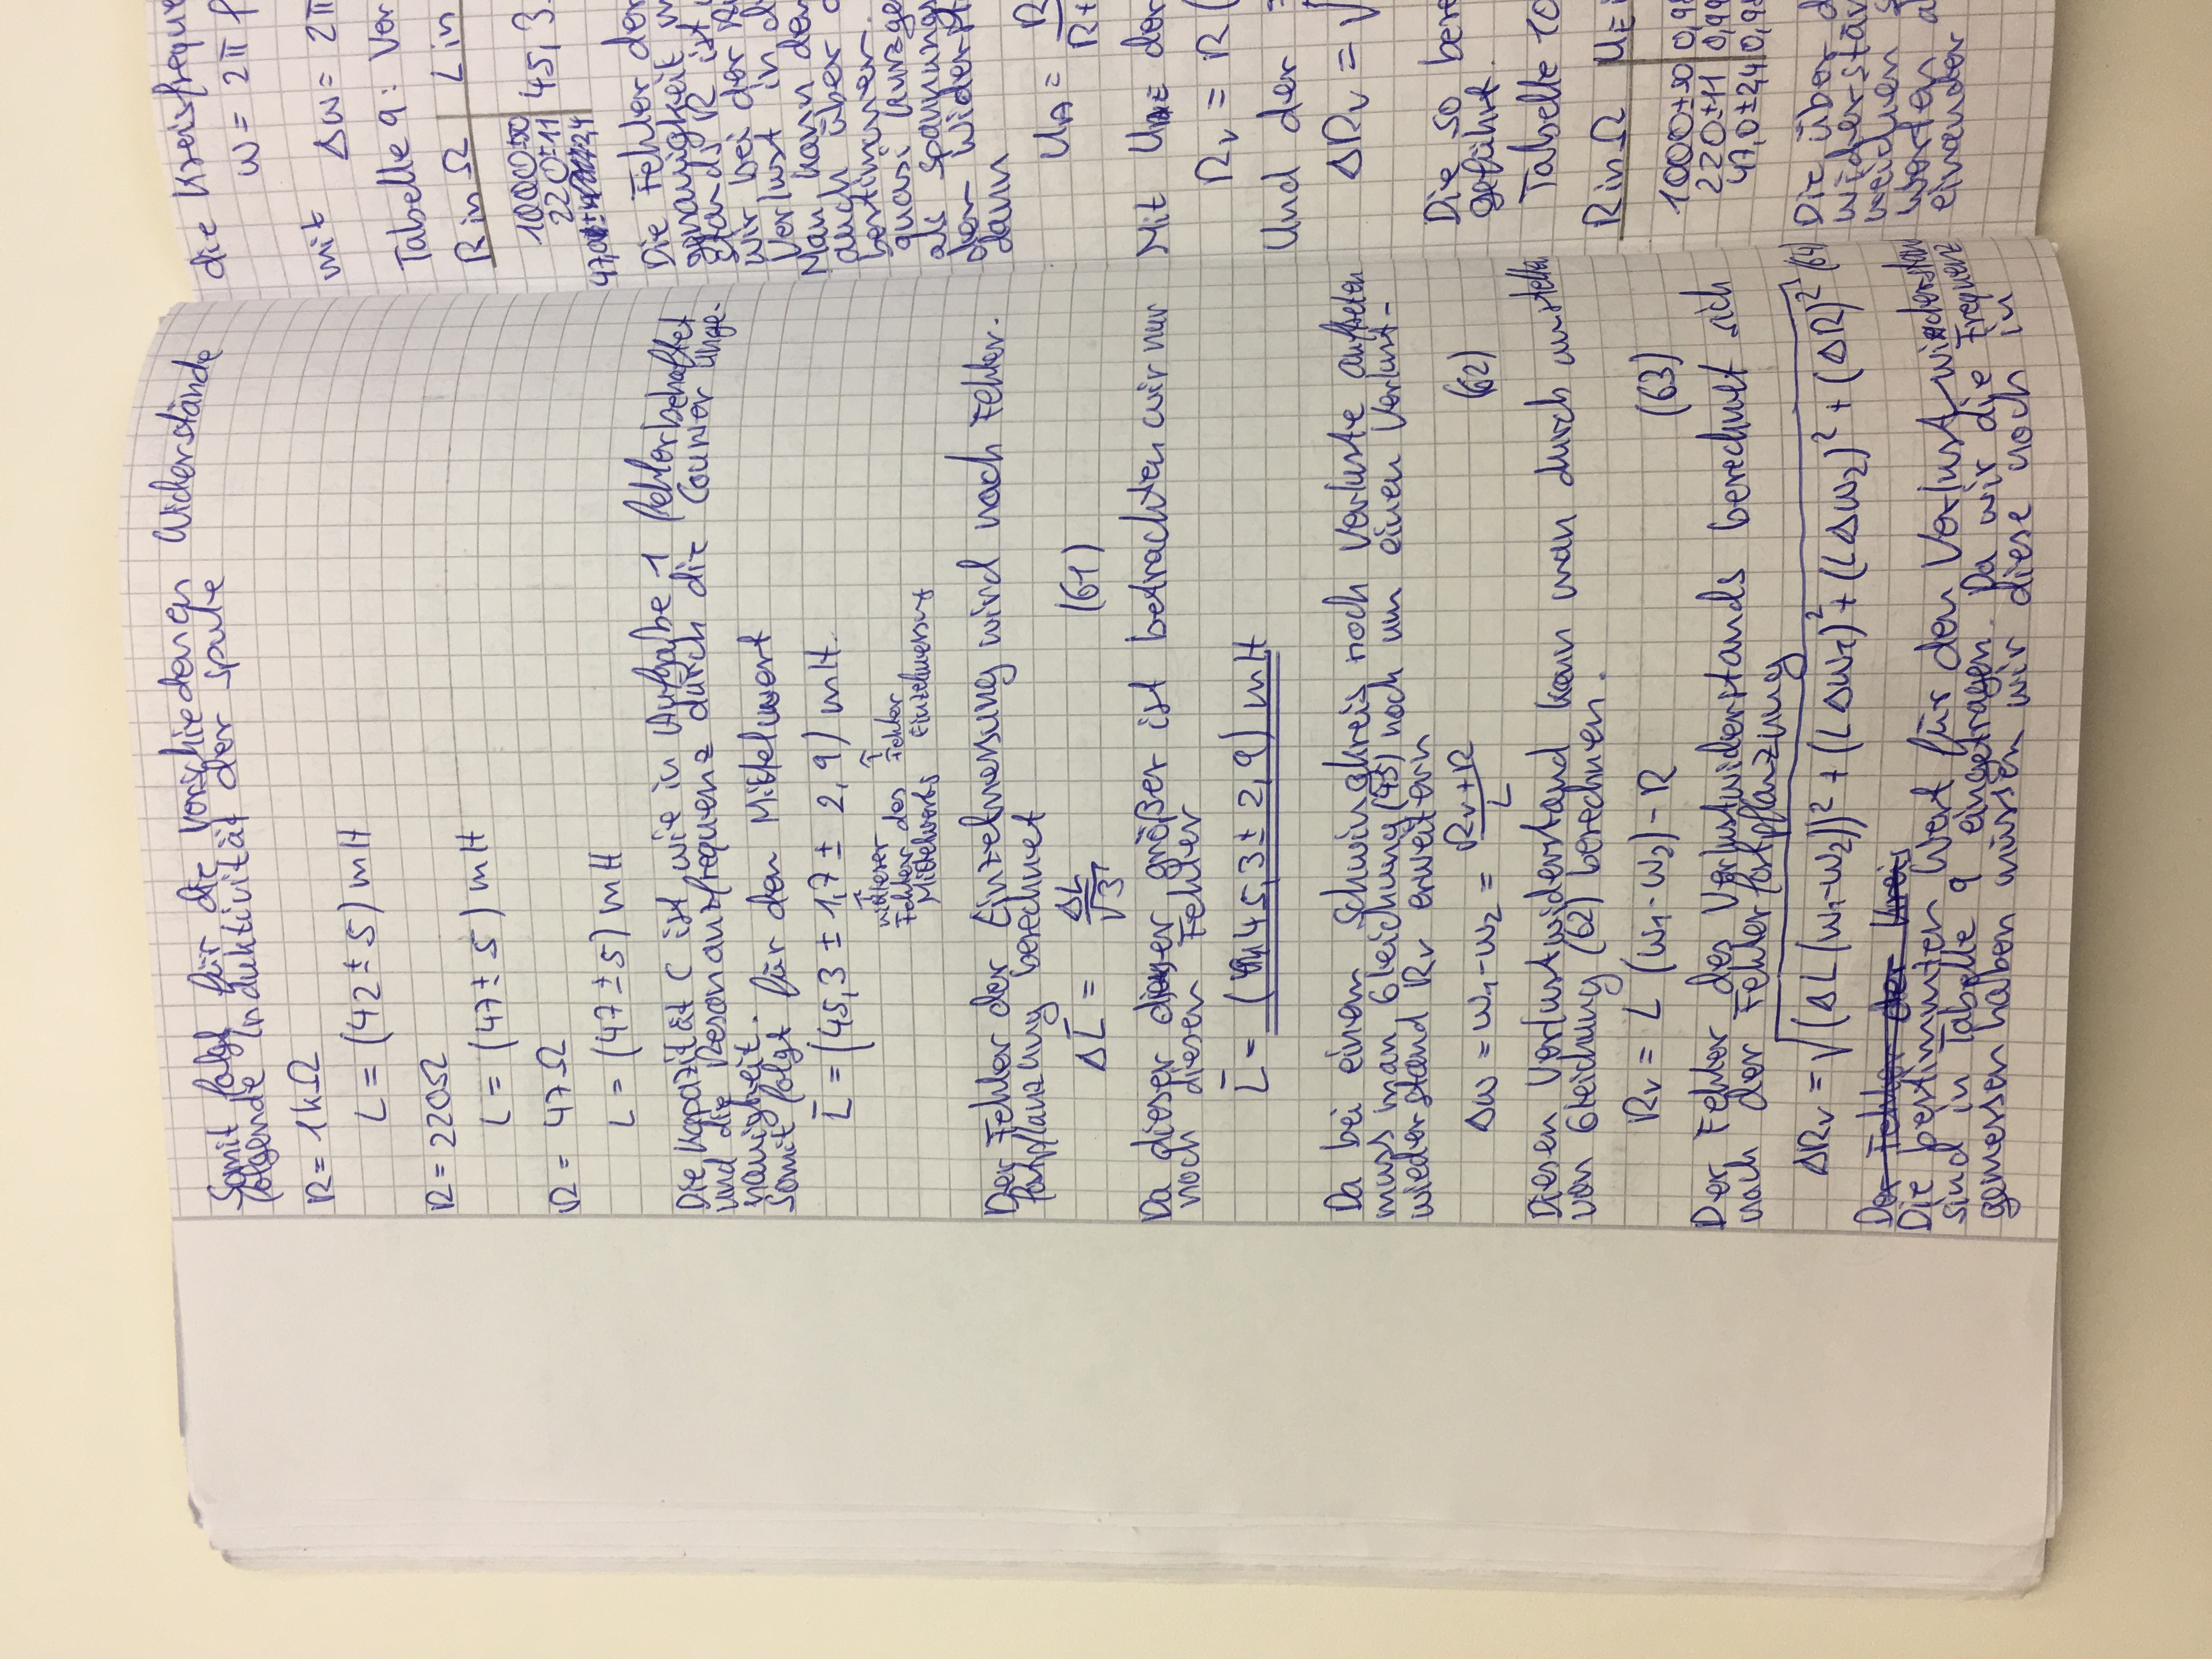 Somit folgt für die verschiedenen Widerstände
folgende Induktivität der spule
R = 1kΩ
L = (42 ± 5) mH
R = 220Ω
L = (47 ± 5) mH
R = 47Ω
L = (47 ± 5) mH
Die Kapazität C ist wie in Aufgabe 1 fehlerbehaftet
und die Resonanzfrequenz durch die Counter unge-
nauigkeit.
Somit folgt für den Mittelwert
L̄ = (45,3 ± 1,7 ± 2,9) mH.
↑ ↑
mittlerer
Fehler des Fehler
Mittelwerts Einzelmessung
Der Fehler der Einzelmessung wird nach Fehler-
fortpflanzung berechnet
ΔL̄ = ΔL/√3 (61)
Da dieser größer ist betrachten wir nur
noch diesen Fehler
L̄ = (45,3 ± 2,9) mH
Da bei einem Schwingkreis noch Verluste auftreten
muss man Gleichung (45) noch um einen Verlust-
wiederstand Rv erweitern
Δω = ω1 - ω2 = (Rv + R)/L (62)
Diesen Verlustwiderstand kann man durch umstellen
von Gleichung (62) berechnen.
Rv = L (ω1 - ω2) - R (63)
Der Fehler des Verlustwiderstands berechnet sich
nach der Fehlerfortpflanzung
ΔRv = √((ΔL(ω1-ω2))² + (LΔω1)² + (LΔω2)² + (ΔR)²) (64)
Der Fehler der Kreis
Die bestimmten Wert für den Verlustwiderstan
sind in Tabelle 9 eingetragen. Da wir die Frequenz
gemessen haben müssen wir diese noch in
die Kreisfreque
ω = 2π f
mit Δω = 2π
Tabelle 9: Ver
R in Ω L in
1000±50
220±11 45,3
2,4
Die Fehler der
genauigkeit
stands R ist
wir bei der
Verlust in d
Man kann der
auch über
bestimmen.
quasi kurzge
als Spannungs
der Widerst
dann
UA = R
R+
Mit der
Rv = R (
Und der
ΔRv = √
Die so bere
geführt.
Tabelle 10
R in Ω UE i
1000±50 0,98
220±11 0,99
47,0±2,4 0,98
Die über d
widerstän
weichen s
Werten a
einander